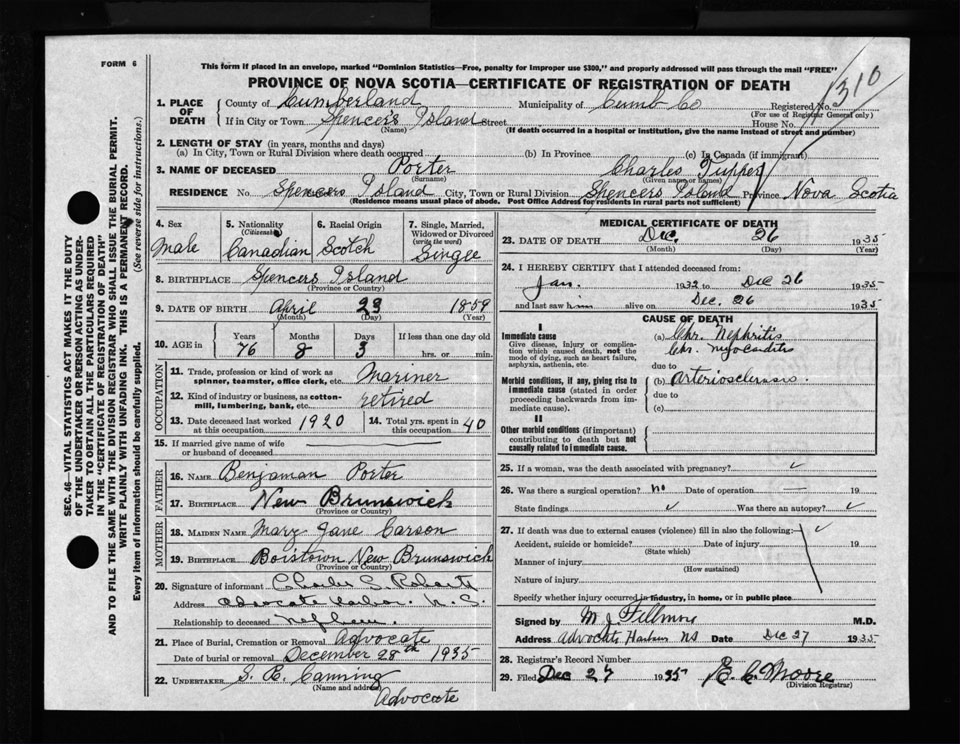 FORM 6
This form if placed in an envelope, marked "Dominion Statistics—Free, penalty for improper use $300," and properly addressed will pass through the mail "FREE"
PROVINCE OF NOVA SCOTIA—CERTIFICATE OF REGISTRATION OF DEATH
1310
1. PLACE OF DEATH
County of Cumberland Municipality of Cumb Co Registered No.
(For use of Registrar General only)
If in City or Town Spencers Island Street House No.
(Name) (If death occurred in a hospital or institution, give the name instead of street and number)
2. LENGTH OF STAY (in years, months and days)
(a) In City, Town or Rural Division where death occurred (b) In Province (c) In Canada (if immigrant)
3. NAME OF DECEASED Porter Charles Tupper
(Surname) (Given name or names)
RESIDENCE No. Spencers Island City, Town or Rural Division Spencers Island Province Nova Scotia
(Residence means usual place of abode. Post Office Address for residents in rural parts not sufficient)
4. Sex
Male
5. Nationality (Citizenship)
Canadian
6. Racial Origin
Scotch
7. Single, Married, Widowed or Divorced (write the word)
Single
8. BIRTHPLACE Spencers Island
(Province or Country)
9. DATE OF BIRTH April 23 1859
(Month) (Day) (Year)
10. AGE Years Months Days If less than one day old
76 8 3 hrs. or min.
OCCUPATION
11. Trade, profession or kind of work as spinner, teamster, office clerk, etc. Mariner
12. Kind of industry or business, as cotton-mill, lumbering, bank, etc. retired
13. Date deceased last worked at this occupation 1920
14. Total yrs. spent in this occupation 40
15. If married give name of wife or husband of deceased
FATHER
16. NAME Benjaman Porter
17. BIRTHPLACE New Brunswick
(Province or Country)
MOTHER
18. MAIDEN NAME Mary Jane Carson
19. BIRTHPLACE Boistown New Brunswick
(Province or Country)
20. Signature of informant Charles C. Roberts
Address Advocate Harbor. N. S.
Relationship to deceased nephew.
21. Place of Burial, Cremation or Removal Advocate
Date of burial or removal December 28th 1935
22. UNDERTAKER S. R. Canning
(Name and address) Advocate
MEDICAL CERTIFICATE OF DEATH
23. DATE OF DEATH Dec. 26 1935
(Month) (Day) (Year)
24. I HEREBY CERTIFY that I attended deceased from:
Jan. 1932 to Dec 26 1935
and last saw him alive on Dec. 26 1935
CAUSE OF DEATH
I
Immediate cause
Give disease, injury or complication which caused death, not the mode of dying, such as heart failure, asphyxia, asthenia, etc.
(a) Chr. Nephritis
Chr. Myocarditis
due to
Morbid conditions, if any, giving rise to immediate cause (stated in order proceeding backwards from immediate cause).
(b) Arteriosclerosis.
due to
(c)
II
Other morbid conditions (if important) contributing to death but not causally related to immediate cause.
25. If a woman, was the death associated with pregnancy?
26. Was there a surgical operation? no Date of operation 19
State findings Was there an autopsy?
27. If death was due to external causes (violence) fill in also the following:
Accident, suicide or homicide? Date of injury 19
(State which)
Manner of injury
(How sustained)
Nature of injury
Specify whether injury occurred in industry, in home, or in public place
Signed by M. J. Fillmore M.D.
Address Advocate Harbour NS Date Dec 27 1935
28. Registrar's Record Number
29. Filed Dec 27 1935 E. C. Moore
(Division Registrar)
SEC. 46—VITAL STATISTICS ACT MAKES IT THE DUTY
OF THE UNDERTAKER OR PERSON ACTING AS UNDER-
TAKER TO OBTAIN ALL THE PARTICULARS REQUIRED
IN THE "CERTIFICATE OF REGISTRATION OF DEATH"
AND TO FILE THE SAME WITH THE DIVISION REGISTRAR WHO SHALL ISSUE THE BURIAL PERMIT.
WRITE PLAINLY WITH UNFADING INK. THIS IS A PERMANENT RECORD.
Every item of information should be carefully supplied. (See reverse side for instructions.)